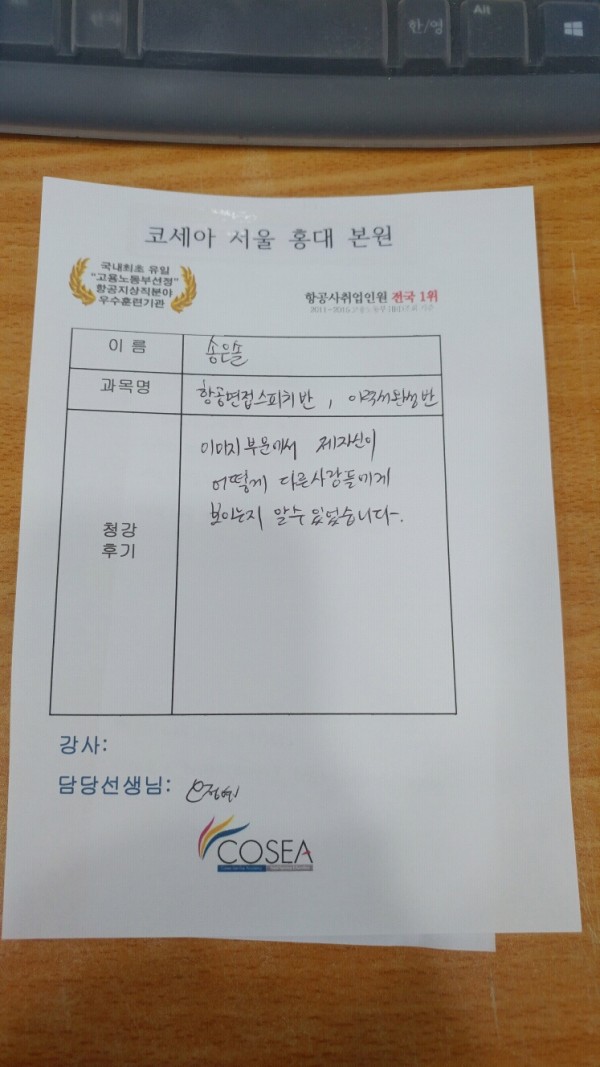 한/영
Alt
코세아 서울 홍대 본원
국내최초 유일
"고용노동부선정"
항공지상직분야
우수훈련기관
항공사취업인원 전국 1위
이 름
송은솔
과목명
항공면접스피치반, 이력서완성반
청강
후기
이미지 부문에서 제자신이
어떻게 다른사람들에게
보이는지 알수 있었습니다.
강사:
담당선생님:
COSEA